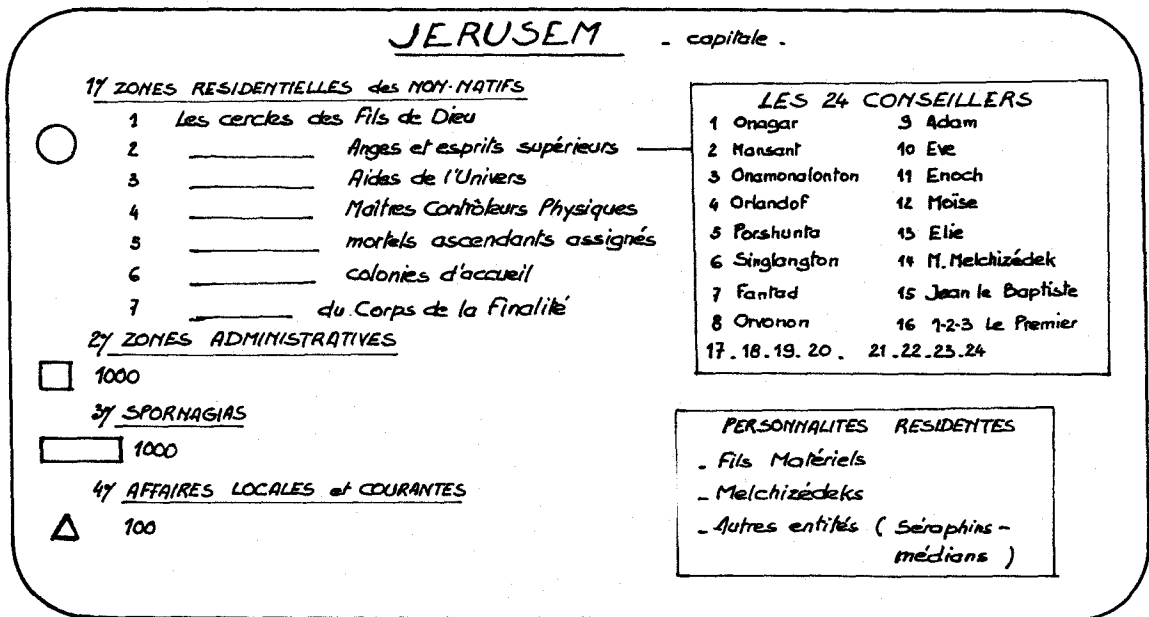 JERUSEM - capitale -
1°/ ZONES RESIDENTIELLES des NON-NATIFS
1 Les cercles des Fils de Dieu
2 Anges et esprits supérieurs
3 Aides de l'Univers
4 Maîtres Contrôleurs Physiques
5 mortels ascendants assignés
6 colonies d'accueil
7 du Corps de la Finalité
2°/ ZONES ADMINISTRATIVES
1000
3°/ SPORNAGIAS
1000
4°/ AFFAIRES LOCALES et COURANTES
100
LES 24 CONSEILLERS
1 Onagar 9 Adam
2 Mansant 10 Eve
3 Onamonalonton 11 Enoch
4 Orlandof 12 Moïse
5 Porshunta 13 Elie
6 Singlangton 14 M. Melchizédek
7 Fantad 15 Jean le Baptiste
8 Orvonon 16 1-2-3 Le Premier
17.18.19.20. 21.22.23.24
PERSONNALITES RESIDENTES
- Fils Matériels
- Melchizédeks
- Autres entités ( Séraphins -
médians )